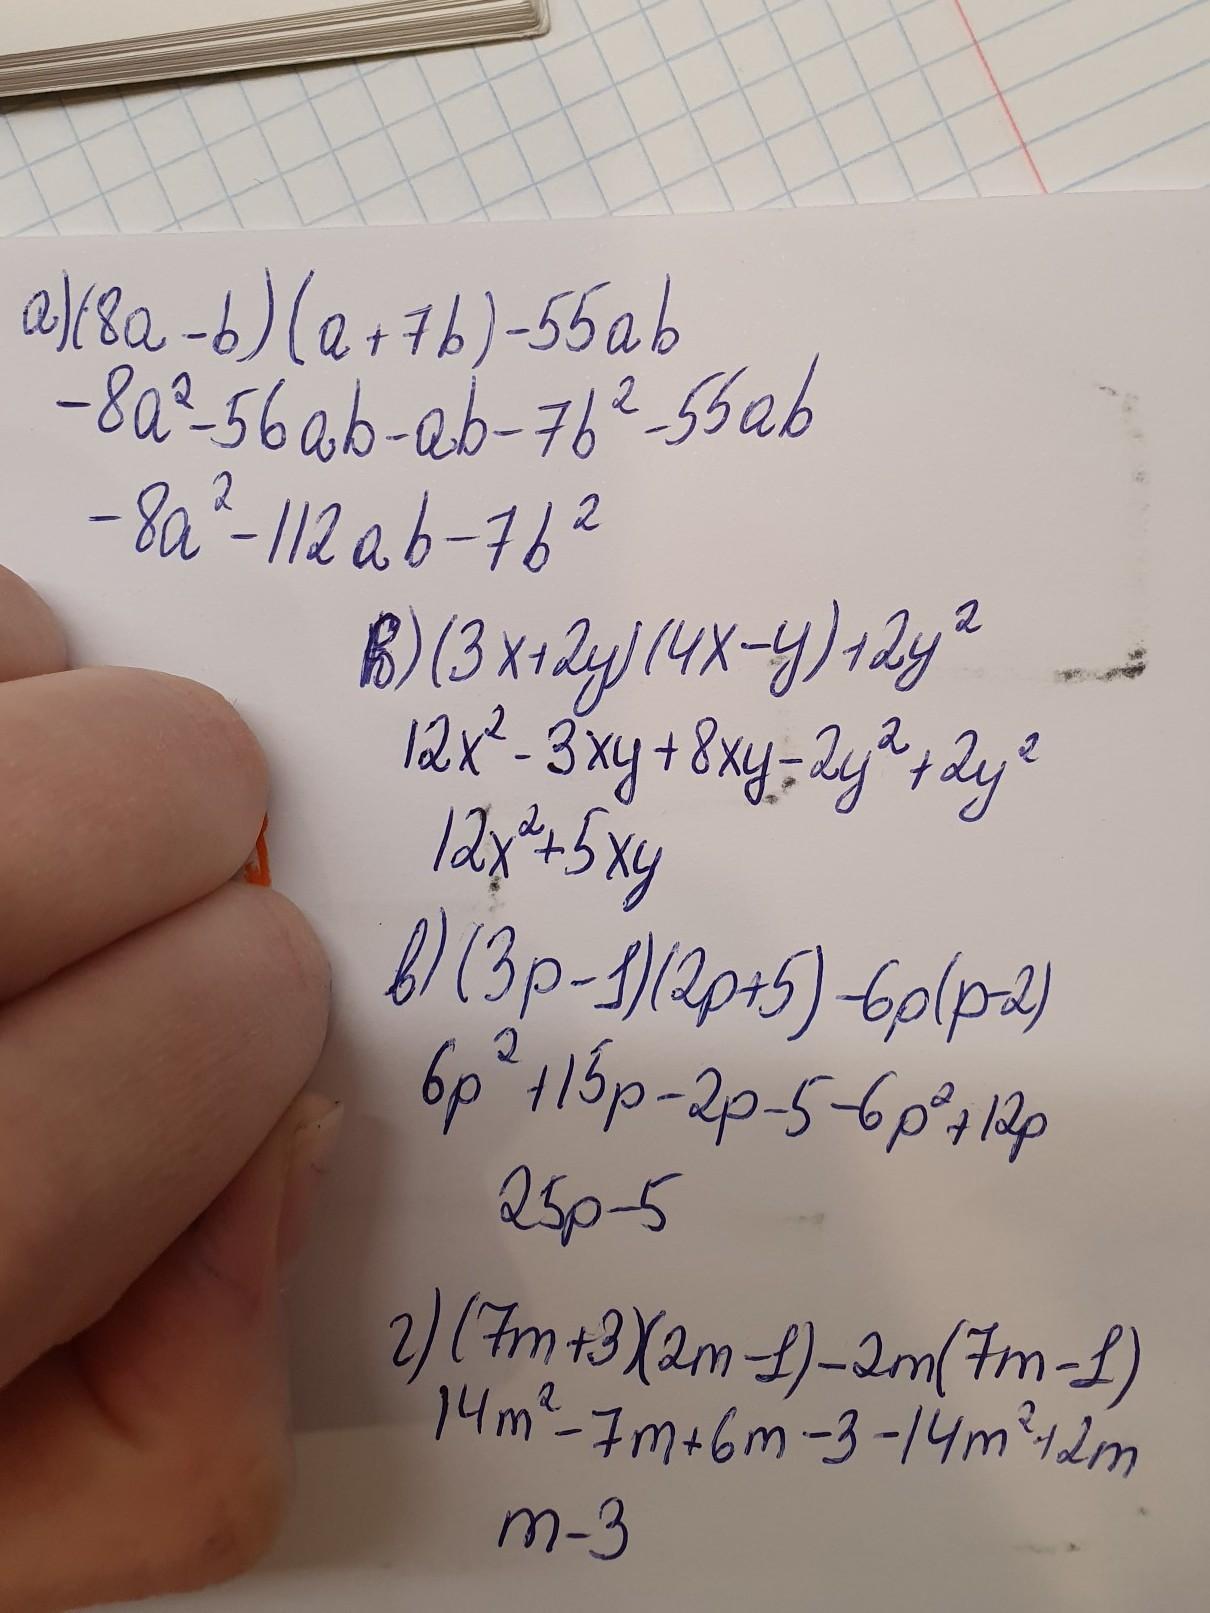 а) (8a-b)(a+7b)-55ab
-8a²-56ab-ab-7b²-55ab
-8a²-112ab-7b²
б) (3x+2y)(4x-y)+2y²
12x²-3xy+8xy-2y²+2y²
12x²+5xy
в) (3p-1)(2p+5)-6p(p-2)
6p²+15p-2p-5-6p²+12p
25p-5
г) (7m+3)(2m-1)-2m(7m-1)
14m²-7m+6m-3-14m²+2m
m-3